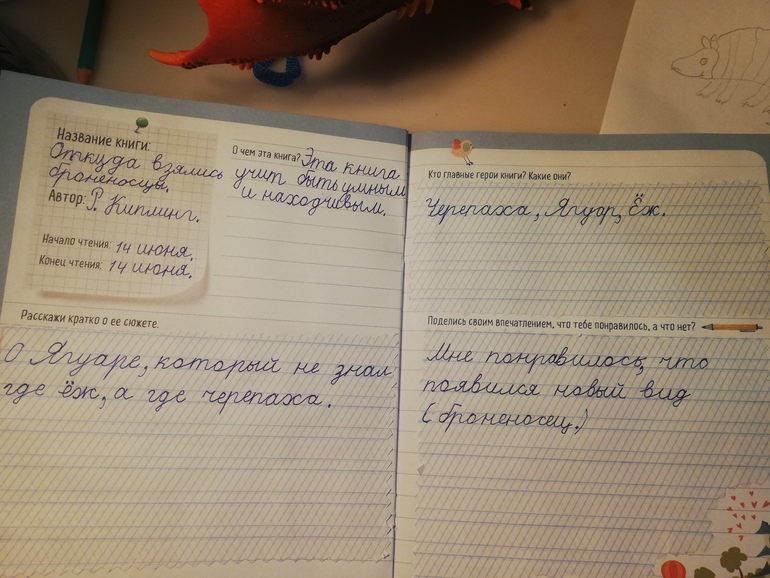 Название книги:
Откуда взялись
броненосцы.
Автор: Р. Киплинг.
Начало чтения: 14 июня.
Конец чтения: 14 июня.
О чем эта книга? Эта книга
учит быть умным
и находчивым.
Расскажи кратко о ее сюжете.
О Ягуаре, который не знал
где ёж, а где черепаха.
Кто главные герои книги? Какие они?
Черепаха, Ягуар, Ёж.
Поделись своим впечатлением, что тебе понравилось, а что нет?
Мне понравилось, что
появился новый вид
(броненосец.)